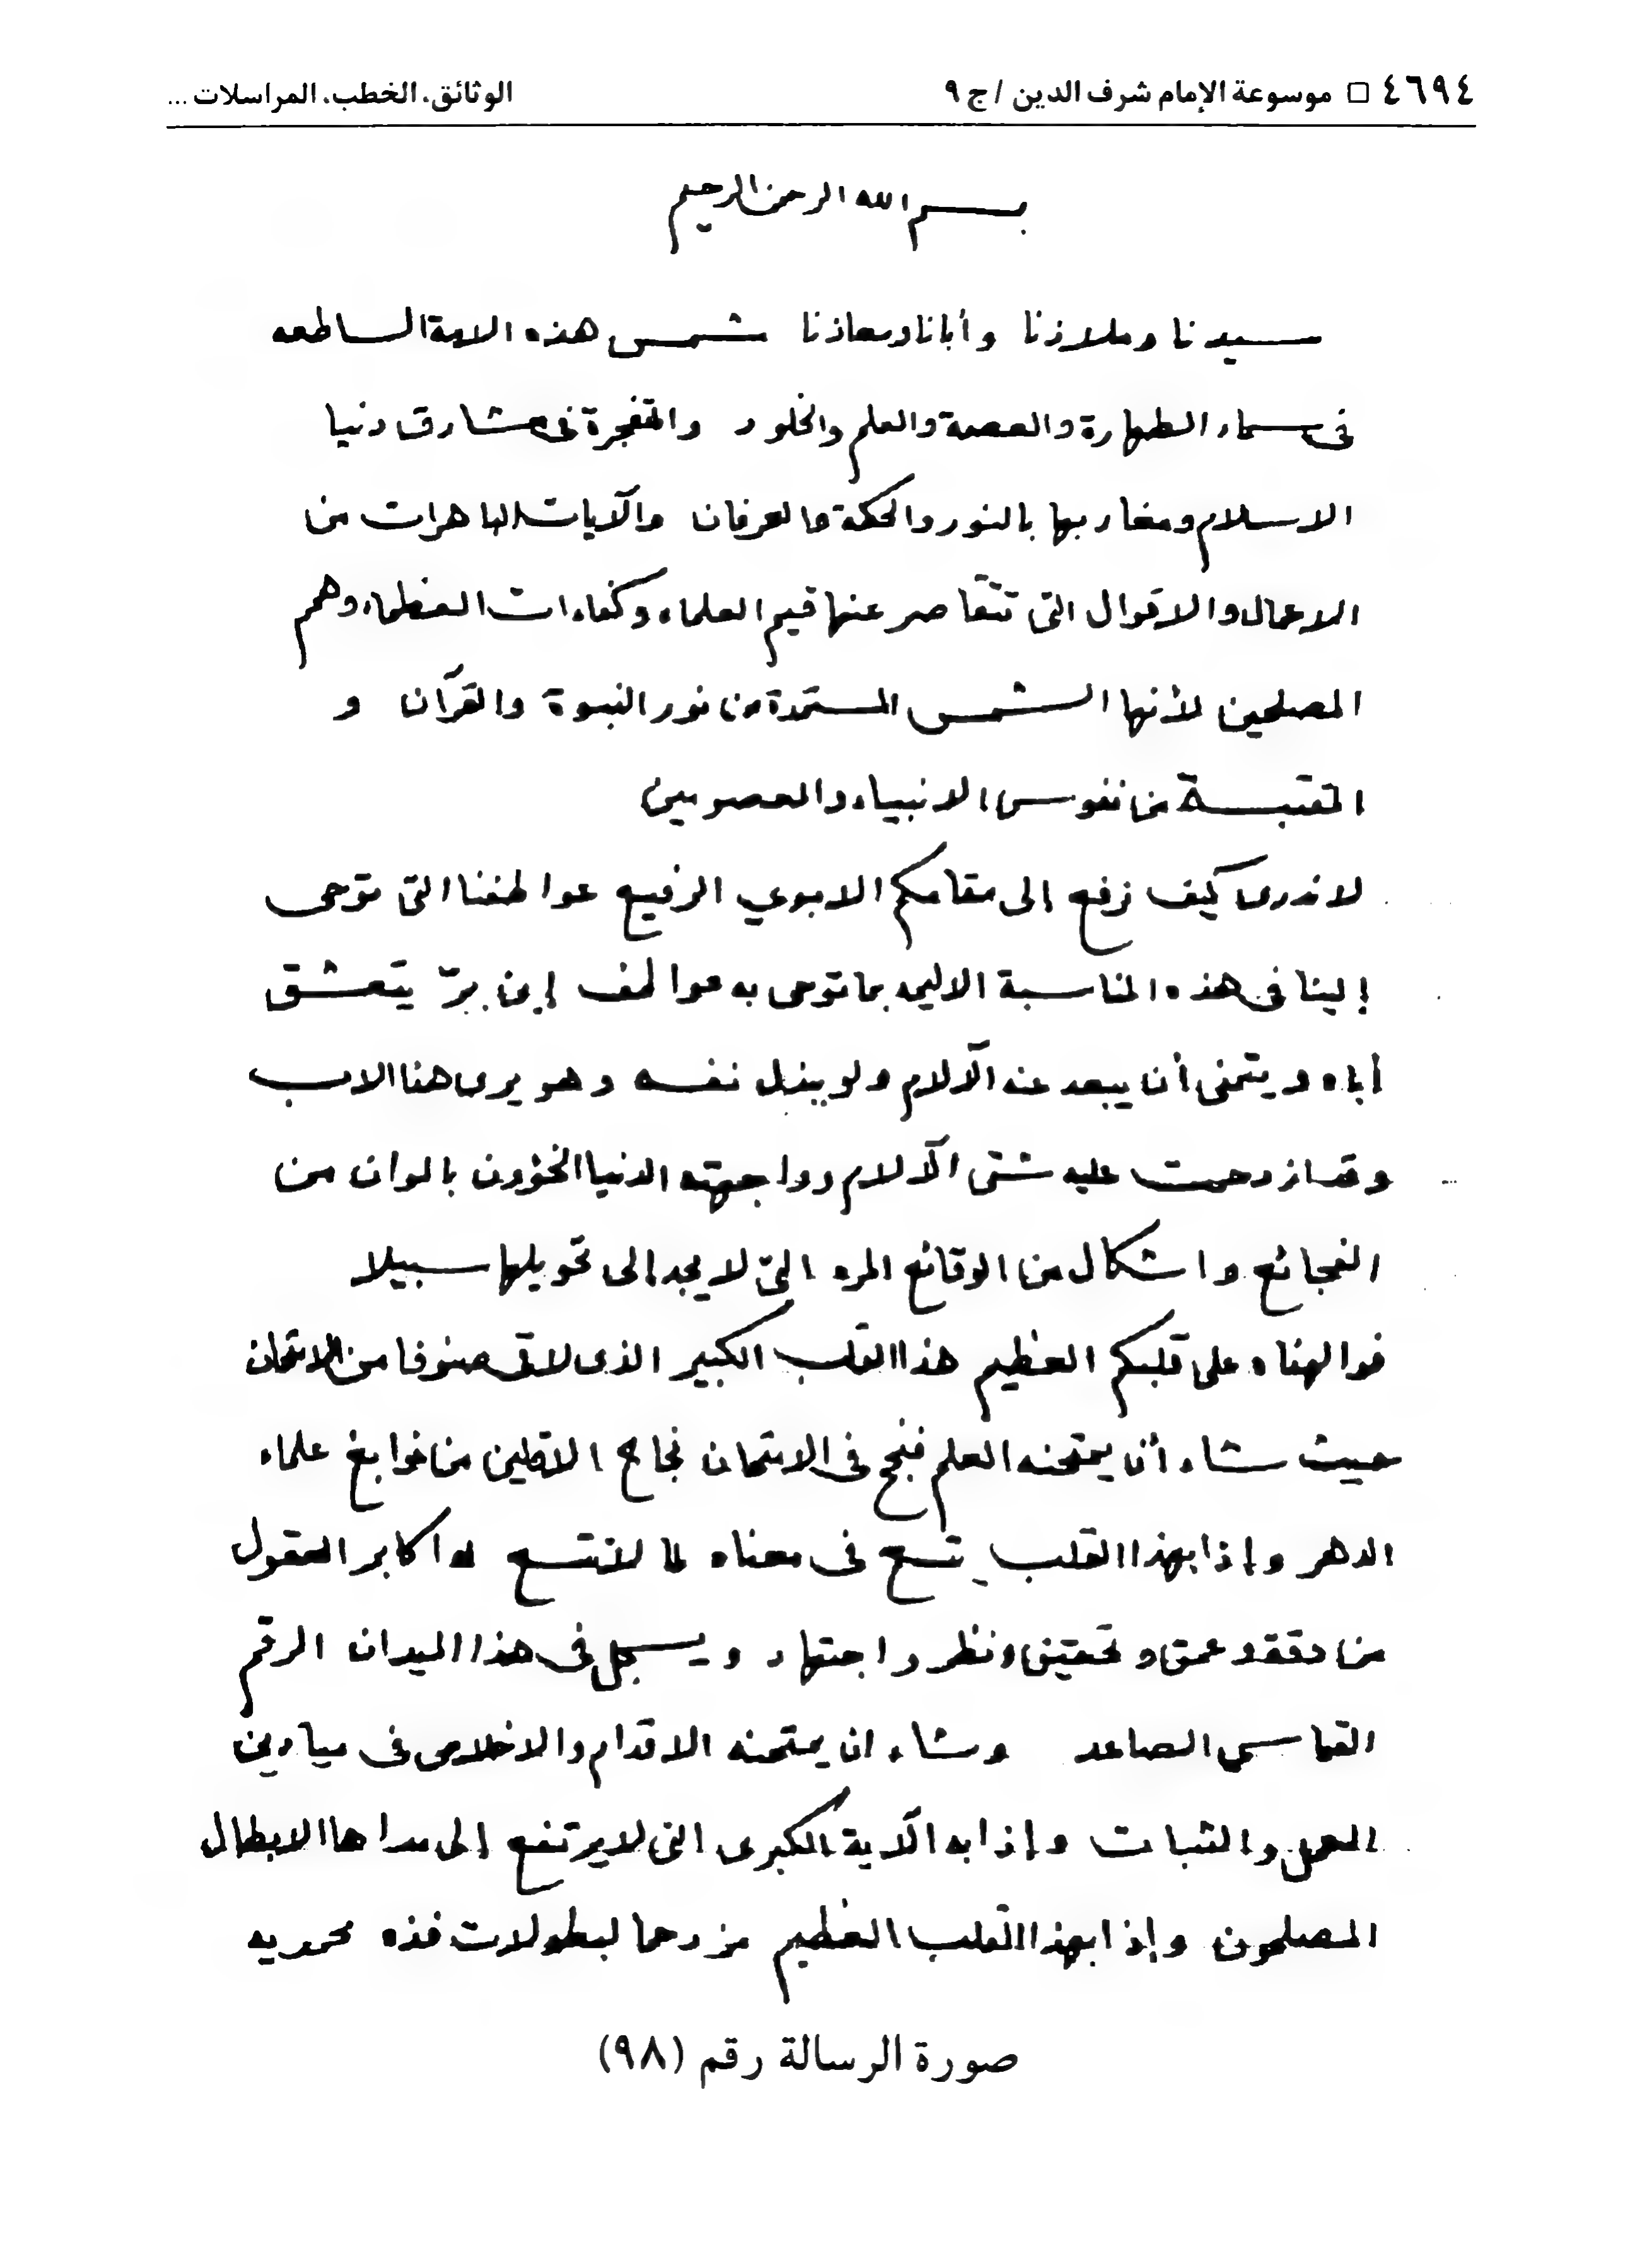 ٤٦٩٤ □ موسوعة الإمام شرف الدين / ج ٩ الوثائق، الخطب، المراسلات ...
بسم الله الرحمن الرحيم
سيدنا وملاذنا وأبانا ومعاذنا شمس هذه الامة الساطعه
في سماء الطهارة والعصمة والعلم والخلود والمتفجرة في مشارق دنيا
الاسلام ومغاربها بالنور والحكمة والعرفان والآيات الباهرات من
الاعمال والاقوال التي تتقاصر عنها قيم العلماء وكفاءات العظماء وهمم
المصلحين لأنها الشمس المستمدة من نور النبوة والقرآن و
المقتبسة من نفوس الانبياء والمعصومين
لا ندرى كيف نرفع إلى مقامكم الابوي الرفيع عواطفنا التي توحى
إلينا في هذه المناسبة الاليمه بما توحى به عواطف إبن برّ يتعشق
أباه ويتمنى أن يبعد عنه الآلام ولو ببذل نفسه وهو يرى هذا الاب
وقد ازدحمت عليه شتى الآلام وواجهته الدنيا الخؤون بالوان من
الفجائع واشكال من الوقائع المره التي لا يجد إلى تحويلها سبيلا
فوا لهفاه على قلبكم العظيم هذا القلب الكبير الذى لاقى صنوفا من الامتحان
حيث شاء أن يمتحنه العلم فنجح في الامتحان نجاح الاقطين من نوابغ علماء
الدهر وإذا بهذا القلب يتسع في معناه لما لا تتسع له اكابر العقول
من دقة وعمق وتحقيق ونظر واجتهاد ويسجل في هذا الميدان الرقم
القياسي الصاعد وشاء ان يمتحنه الاقدام والاخلاص في ميادين
العمل والثبات وإذا به الآية الكبرى التي لا يرتفع إلى مداها الابطال
المصلحون وإذا بهذا القلب العظيم مزدحما لبطولات فذه محمديه
صورة الرسالة رقم (٩٨)